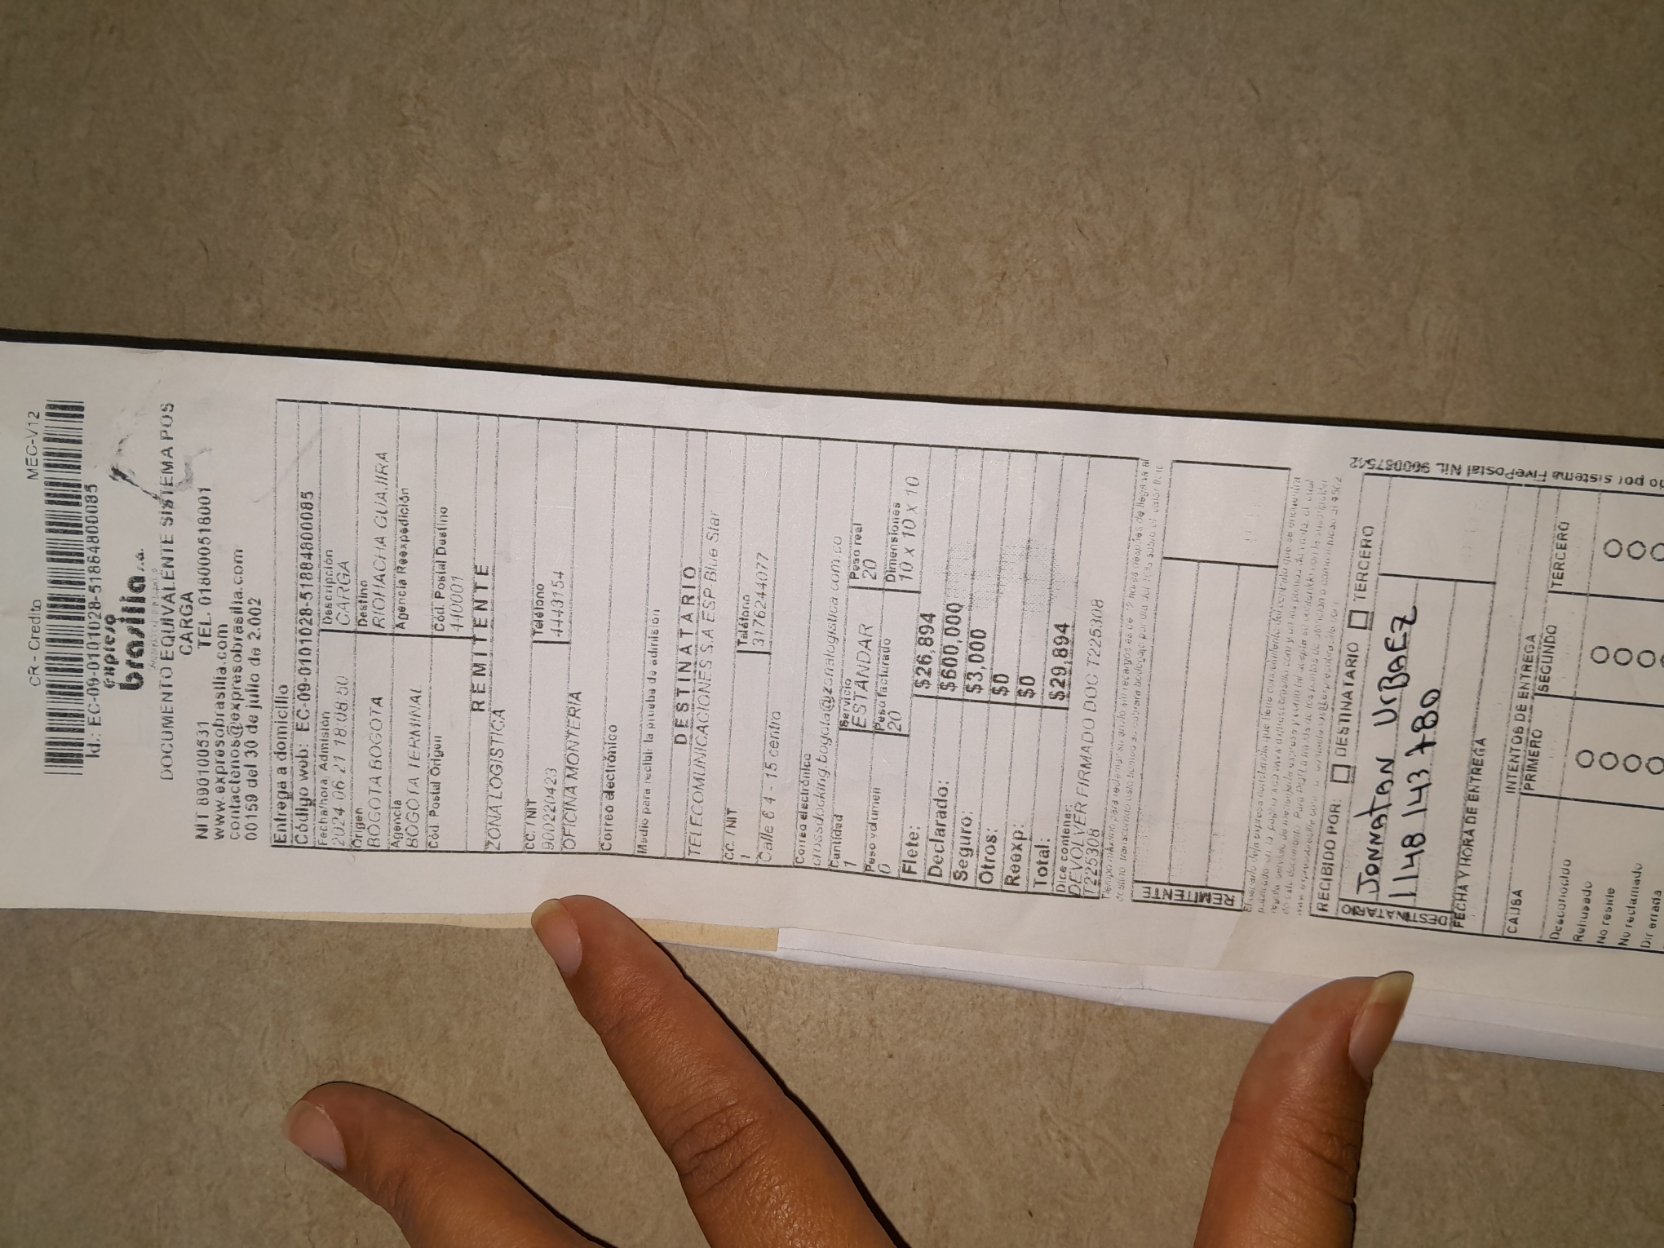 CR - Credito MEC-V12
Id.: EC-09-0101028-51884800085
expreso
brasilia s.a.
DOCUMENTO EQUIVALENTE SISTEMA POS
CARGA
NIT 890100531 TEL. 018000518001
www.expresobrasilia.com
contactenos@expresobrasilia.com
00159 del 30 de julio de 2.002
Entrega a domicilio
Código web: EC-09-0101028-51884800085
Fecha/hora Admisión Descripción
2024 06 21 18:08:50 CARGA
Origen Destino
BOGOTA BOGOTA RIOHACHA GUAJIRA
Agencia Agencia Reexpedición
BOGOTA TERMINAL
Cód. Postal Origen Cód. Postal Destino
440001
REMITENTE
ZONA LOGISTICA
CC. / NIT Teléfono
900220423 4443154
OFICINA MONTERIA
Correo electrónico
Medio para recibir la prueba de admisión
DESTINATARIO
TELECOMUNICACIONES S.A ESP Blue Star
CC. / NIT Teléfono
1 3176244077
Calle 6 4 - 15 centro
Correo electrónico
crossdocking.bogota@zonalogistica.com.co
Cantidad Servicio Peso real
1 ESTANDAR 20
Peso volumen Peso facturado Dimensiones
0 20 10 x 10 x 10
Flete: $26,894
Declarado: $600,000
Seguro: $3,000
Otros: $0
Reexp: $0
Total: $29,894
Dice contener:
DEVOLVER FIRMADO DOC T225308
T225308
REMITENTE
RECIBIDO POR: DESTINATARIO TERCERO
DESTINATARIO
JONNATAN URBAEZ
1148143780
FECHA Y HORA DE ENTREGA
CAUSA INTENTOS DE ENTREGA
PRIMERO SEGUNDO TERCERO
Desconocido
Rehusado
No reside
No reclamado
Dir errada
por sistema FivePostal Nit. 900087542